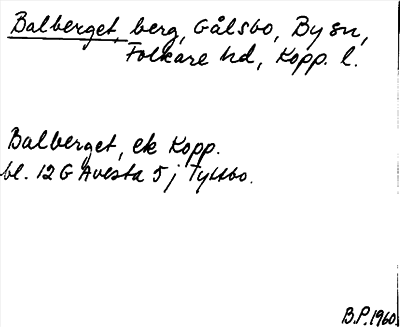 Balberget, berg, Gålsbo, By sn,
Folkare hd, Kopp. l.
Balberget, ek Kopp.
bl. 12G Avesta 5j Tyllsbo.
B.P. 1960